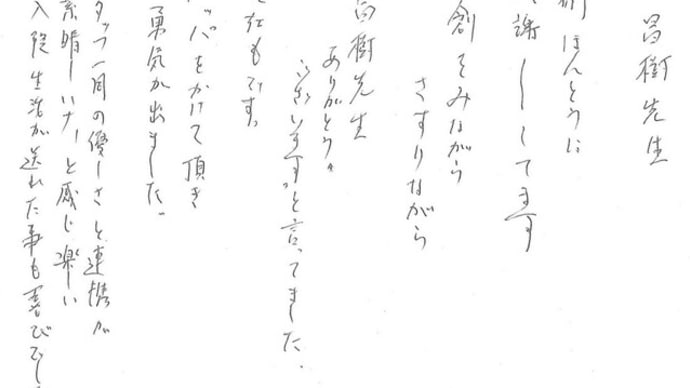 昌樹先生
ほんとうに
謝してます
創をみながら
さすりながら
昌樹先生
ありがとう
ございます〟と言ってました。
在もです。
ッパをかけて頂き
勇気が出ました。
タッフ一同の優しさと連携が
素晴しいナ、と感じ楽しい
入院生活が送れた事も喜びでし